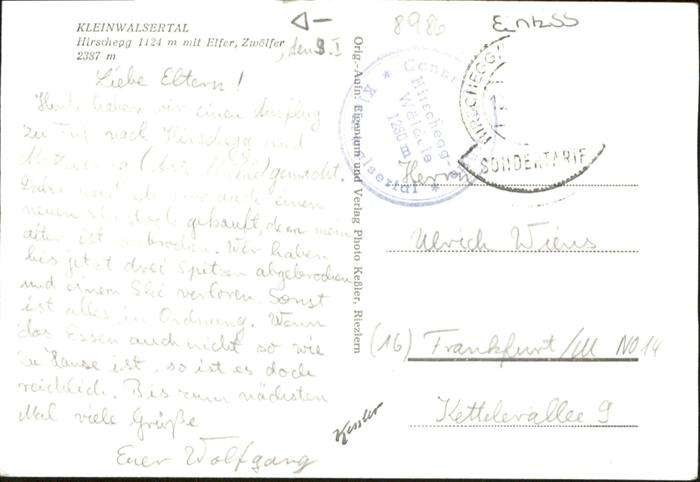 KLEINWALSERTAL
Hirschegg 1124 m mit Elfer, Zwölfer
2387 m
, den 9. I
Liebe Eltern!
Heute haben wir einen Ausflug
zu Fuß nach Hirschegg und
gemacht.
einen
neuen gekauft, denn mein
alter ist gebrochen. Wir haben
bis jetzt drei Spitzen abgebrochen
und einen Ski verloren. Sonst
ist alles in Ordnung. Wenn
das Essen auch nicht so wie
zu Hause ist, so ist es doch
reichlich. Bis zum nächsten
Mal viele Grüße
Euer Wolfgang
Orig.-Aufn. Eigentum und Verlag Photo Keßler, Riezlern
Kessler
8986
HIRSCHEGG
SONDERTARIF
Hirschegg
1280 m
Herrn
Ulrich Wiens
(16) Frankfurt/M NO 14
Kettelerallee 9